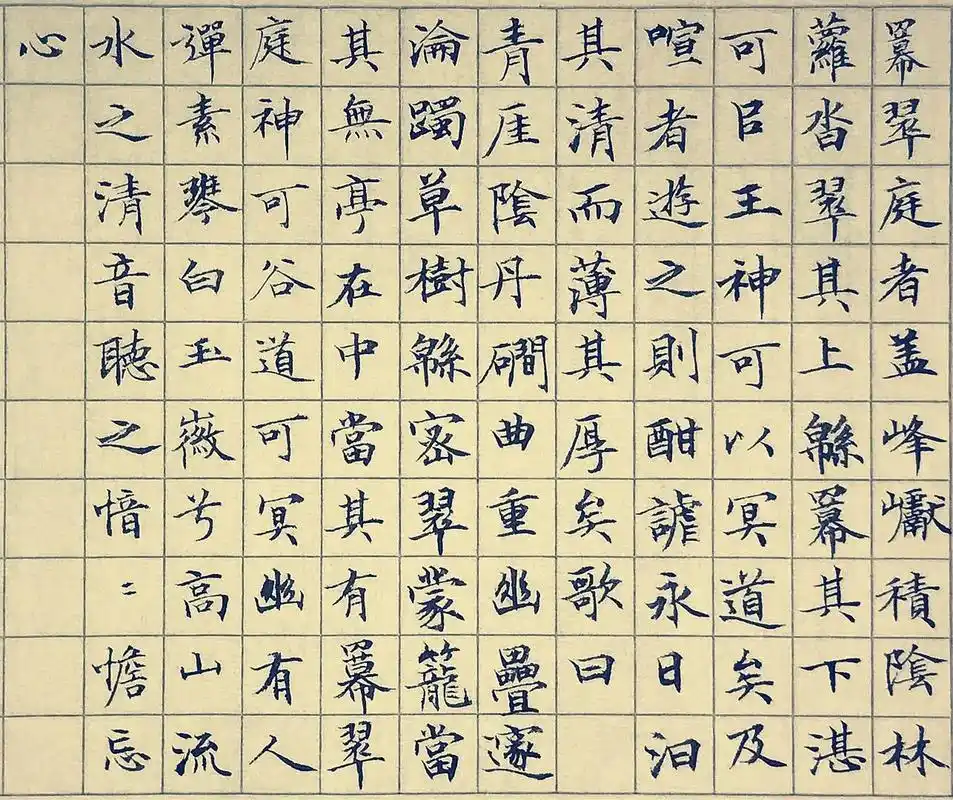 羃翠庭者盖峰巘積陰林
蘿沓翠其上緜羃其下湛
可㠯王神可以冥道矣及
喧者遊之則酣謔永日汩
其清而薄其厚矣歌曰
青厓陰丹磵曲重幽疊邃
淪躅草樹緜密翠蒙籠當
其無亭在中當其有羃翠
庭神可谷道可冥幽有人
彈素琴白玉徽兮高山流
水之清音聽之愔〻憺忘
心